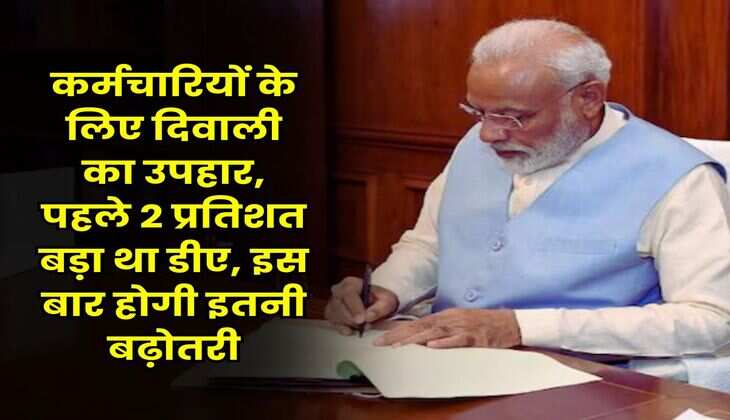 कर्मचारियों के
लिए दिवाली
का उपहार,
पहले 2 प्रतिशत
बड़ा था डीए, इस
बार होगी इतनी
बढ़ोतरी